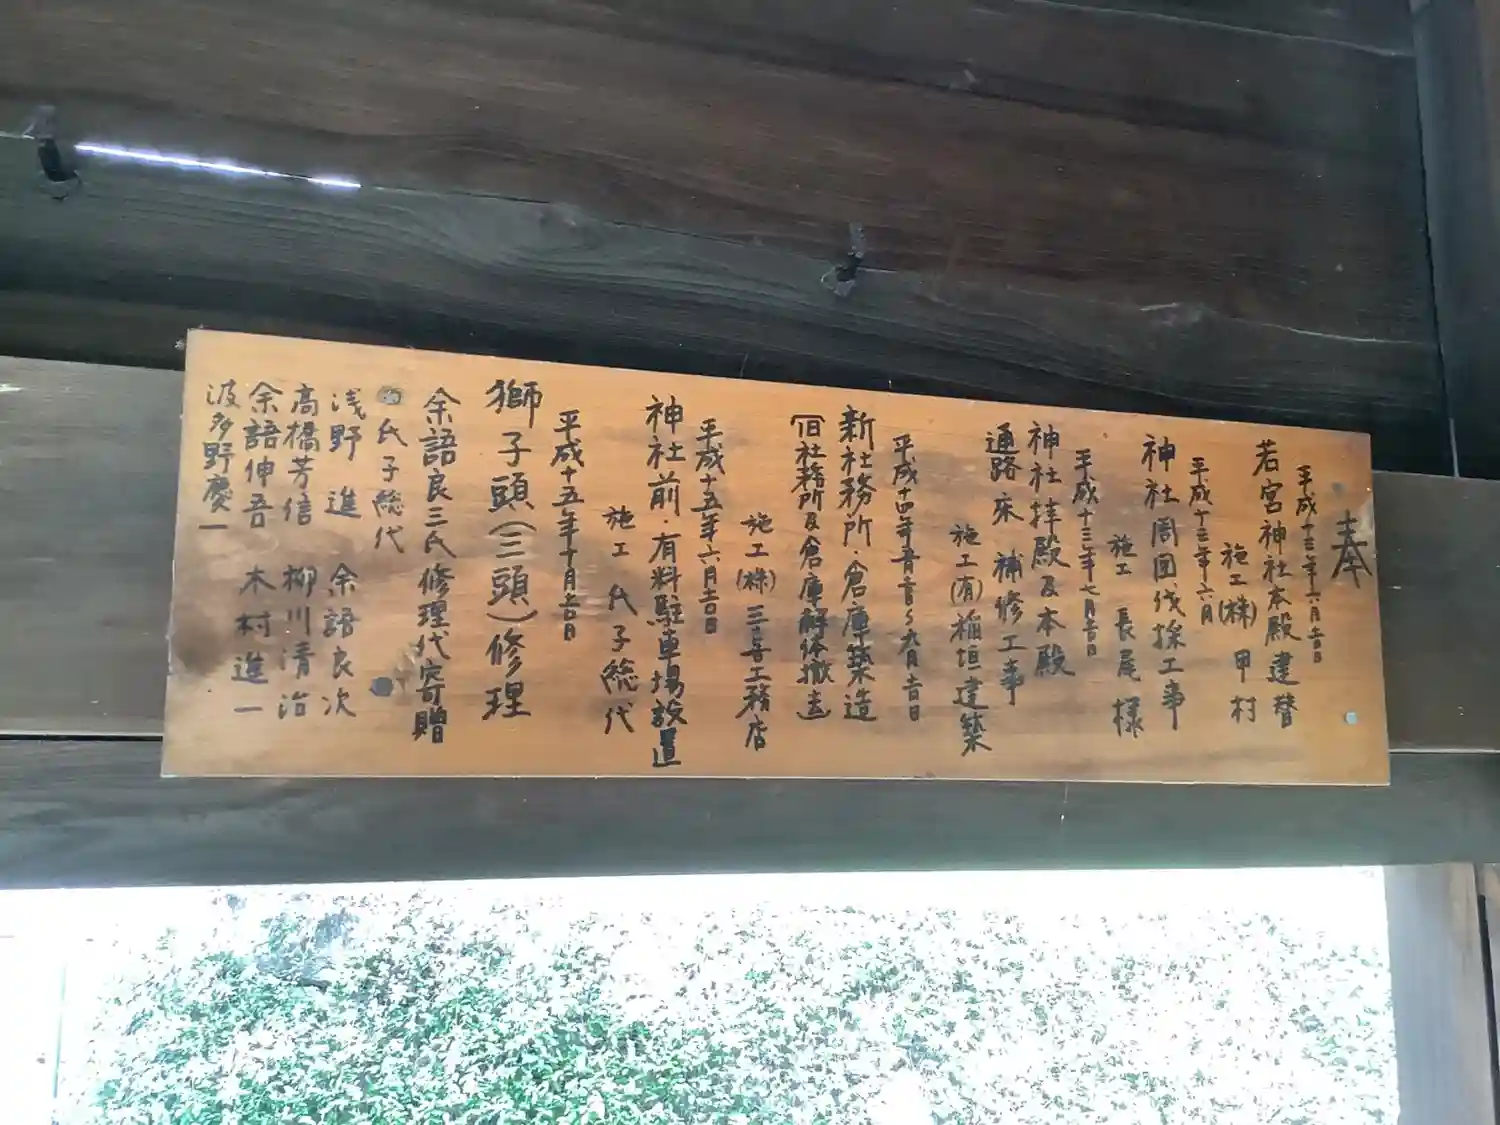 奉
平成十三年六月吉日
若宮神社本殿建替
施工(株) 甲村
平成十三年六月
神社周囲伐採工事
施工 長尾様
平成十三年七月吉日
神社拝殿及本殿
通路床 補修工事
施工(有)稲垣建築
平成十四年 九月吉日
新社務所・倉庫築造
旧社務所及倉庫解体撤去
施工(株)三喜工務店
平成十五年六月吉日
神社前・有料駐車場放置
施工 氏子総代
平成十五年十月吉日
獅子頭(三頭)修理
余語良三氏修理代寄贈
氏子総代
浅野 進 余語良次
高橋芳信 柳川清治
余語伸吾 木村進一
波多野慶一